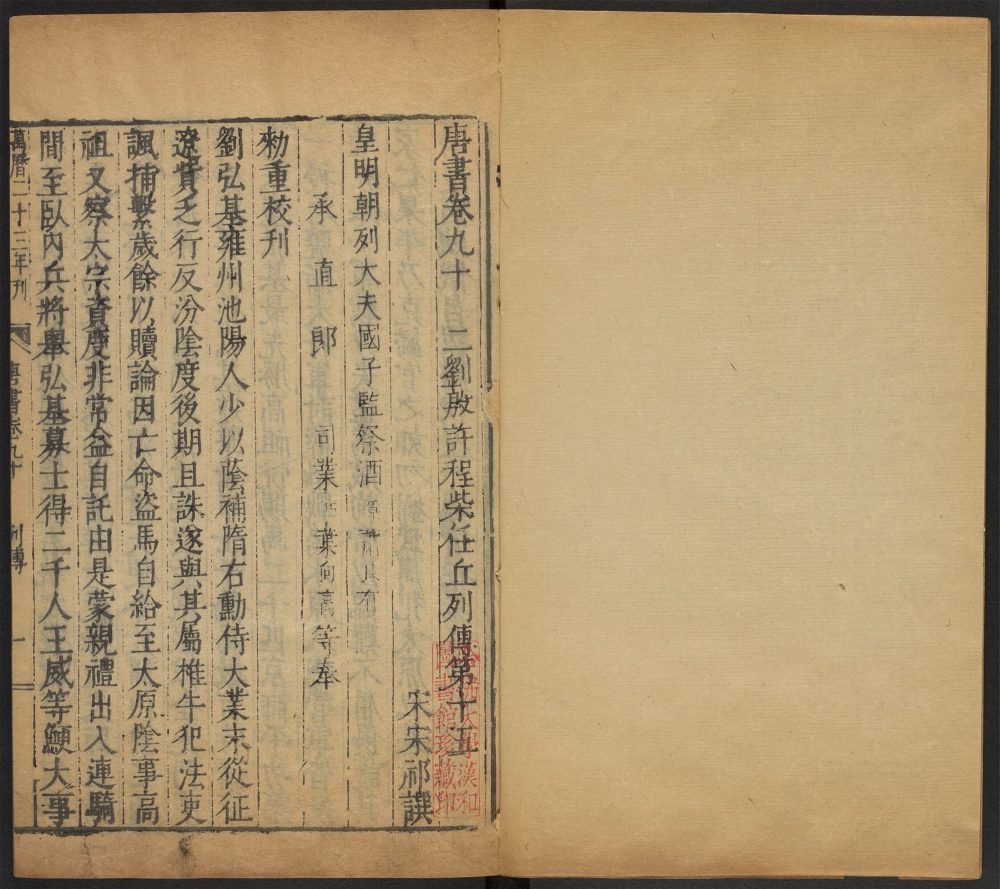 唐書卷九十　二劉殷許程柴任丘列傳第十五
宋宋祁譔
皇明朝列大夫國子監祭酒
承直郎　司業　葉向高等奉
勑重校刊
劉弘基雍州池陽人少以蔭補隋右勳侍大業末從征
遼貲乏行反汾陰度後期且誅遂與其屬椎牛犯法吏
諷捕繫歲餘以贖論因亡命盜馬自給至太原陰事高
祖又察太宗資度非常益自託由是蒙親禮出入連騎
間至臥內兵將舉弘基募士得二千人王威等鯁大事
萬曆二十三年刊　唐書卷九十　列傳　一
大學漢和
圖書館珍藏印